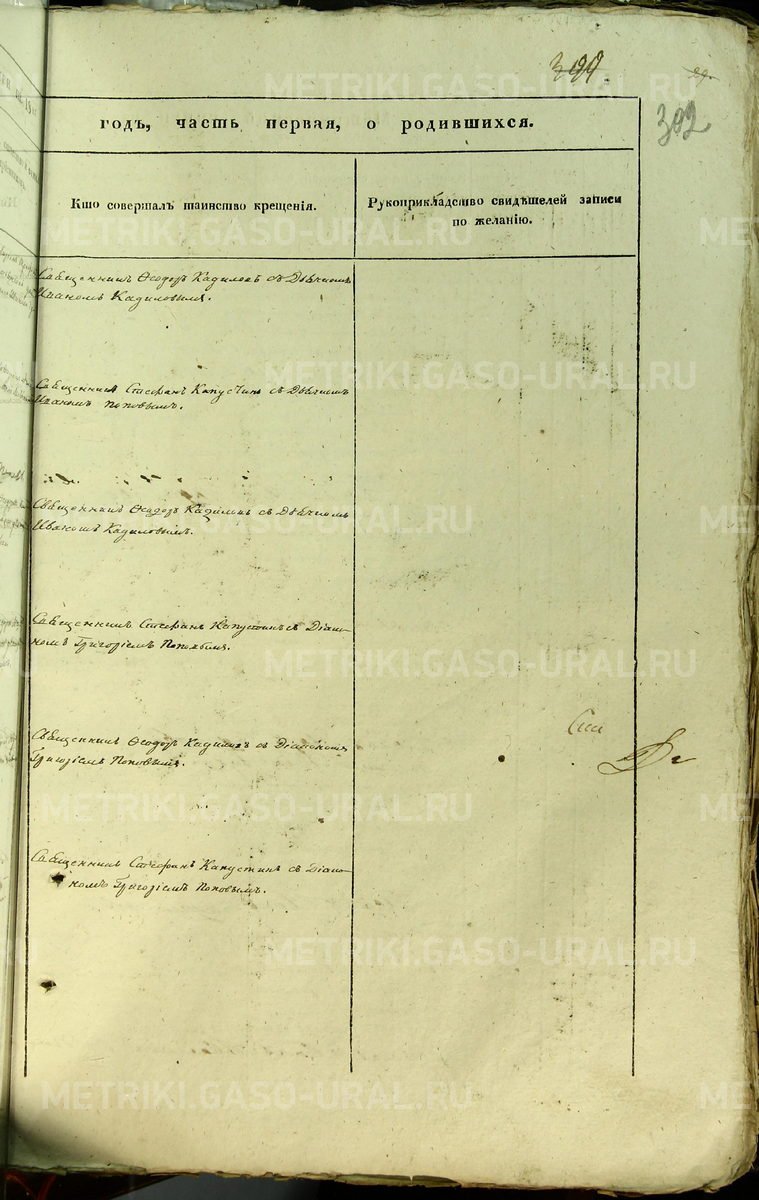 302
годъ, часть первая, о родившихся.
Кто совершалъ таинство крещенія.
Рукоприкладство свидѣтелей записи
по желанію.
Священникъ Ѳеодоръ Кадиловъ съ Дьячкомъ
Иваномъ Кадиловымъ.
Священникъ Стефанъ Капустинъ съ Дьячкомъ
Иваномъ Поповымъ.
Священникъ Ѳеодоръ Кадиловъ съ Дьячкомъ
Иваномъ Кадиловымъ.
Священникъ Стефанъ Капустинъ съ Діако-
номъ Григоріемъ Поповымъ.
Священникъ Ѳеодоръ Кадиловъ съ Діакономъ
Григоріемъ Поповымъ.
Священникъ Стефанъ Капустинъ съ Діако-
номъ Григоріемъ Поповымъ.
METRIKI.GASO-URAL.RU